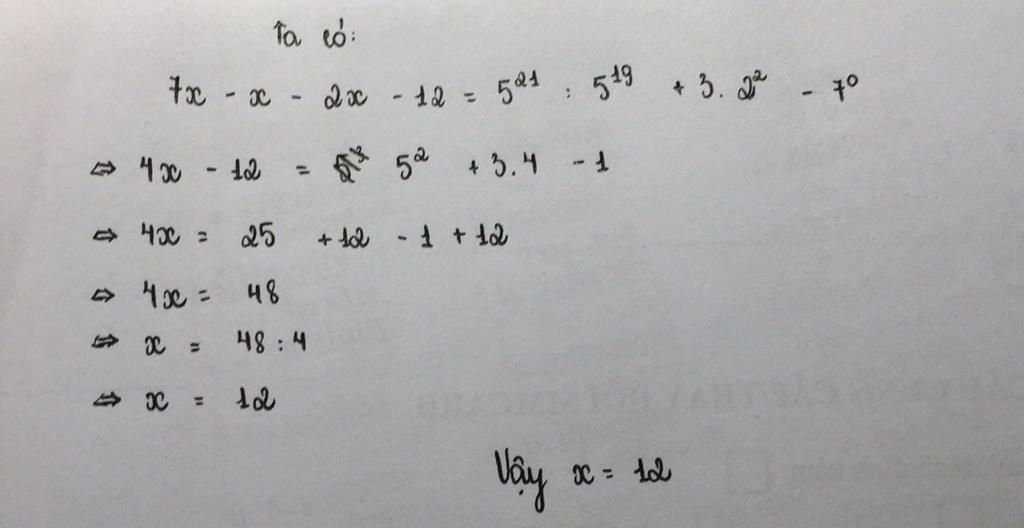 Ta có:
7x - x - 2x - 12 = 5²¹ : 5¹⁹ + 3. 2² - 7⁰
⇔ 4x - 12 = 5² + 3.4 - 1
⇔ 4x = 25 + 12 - 1 + 12
⇔ 4x = 48
⇔ x = 48 : 4
⇔ x = 12
Vậy x = 12